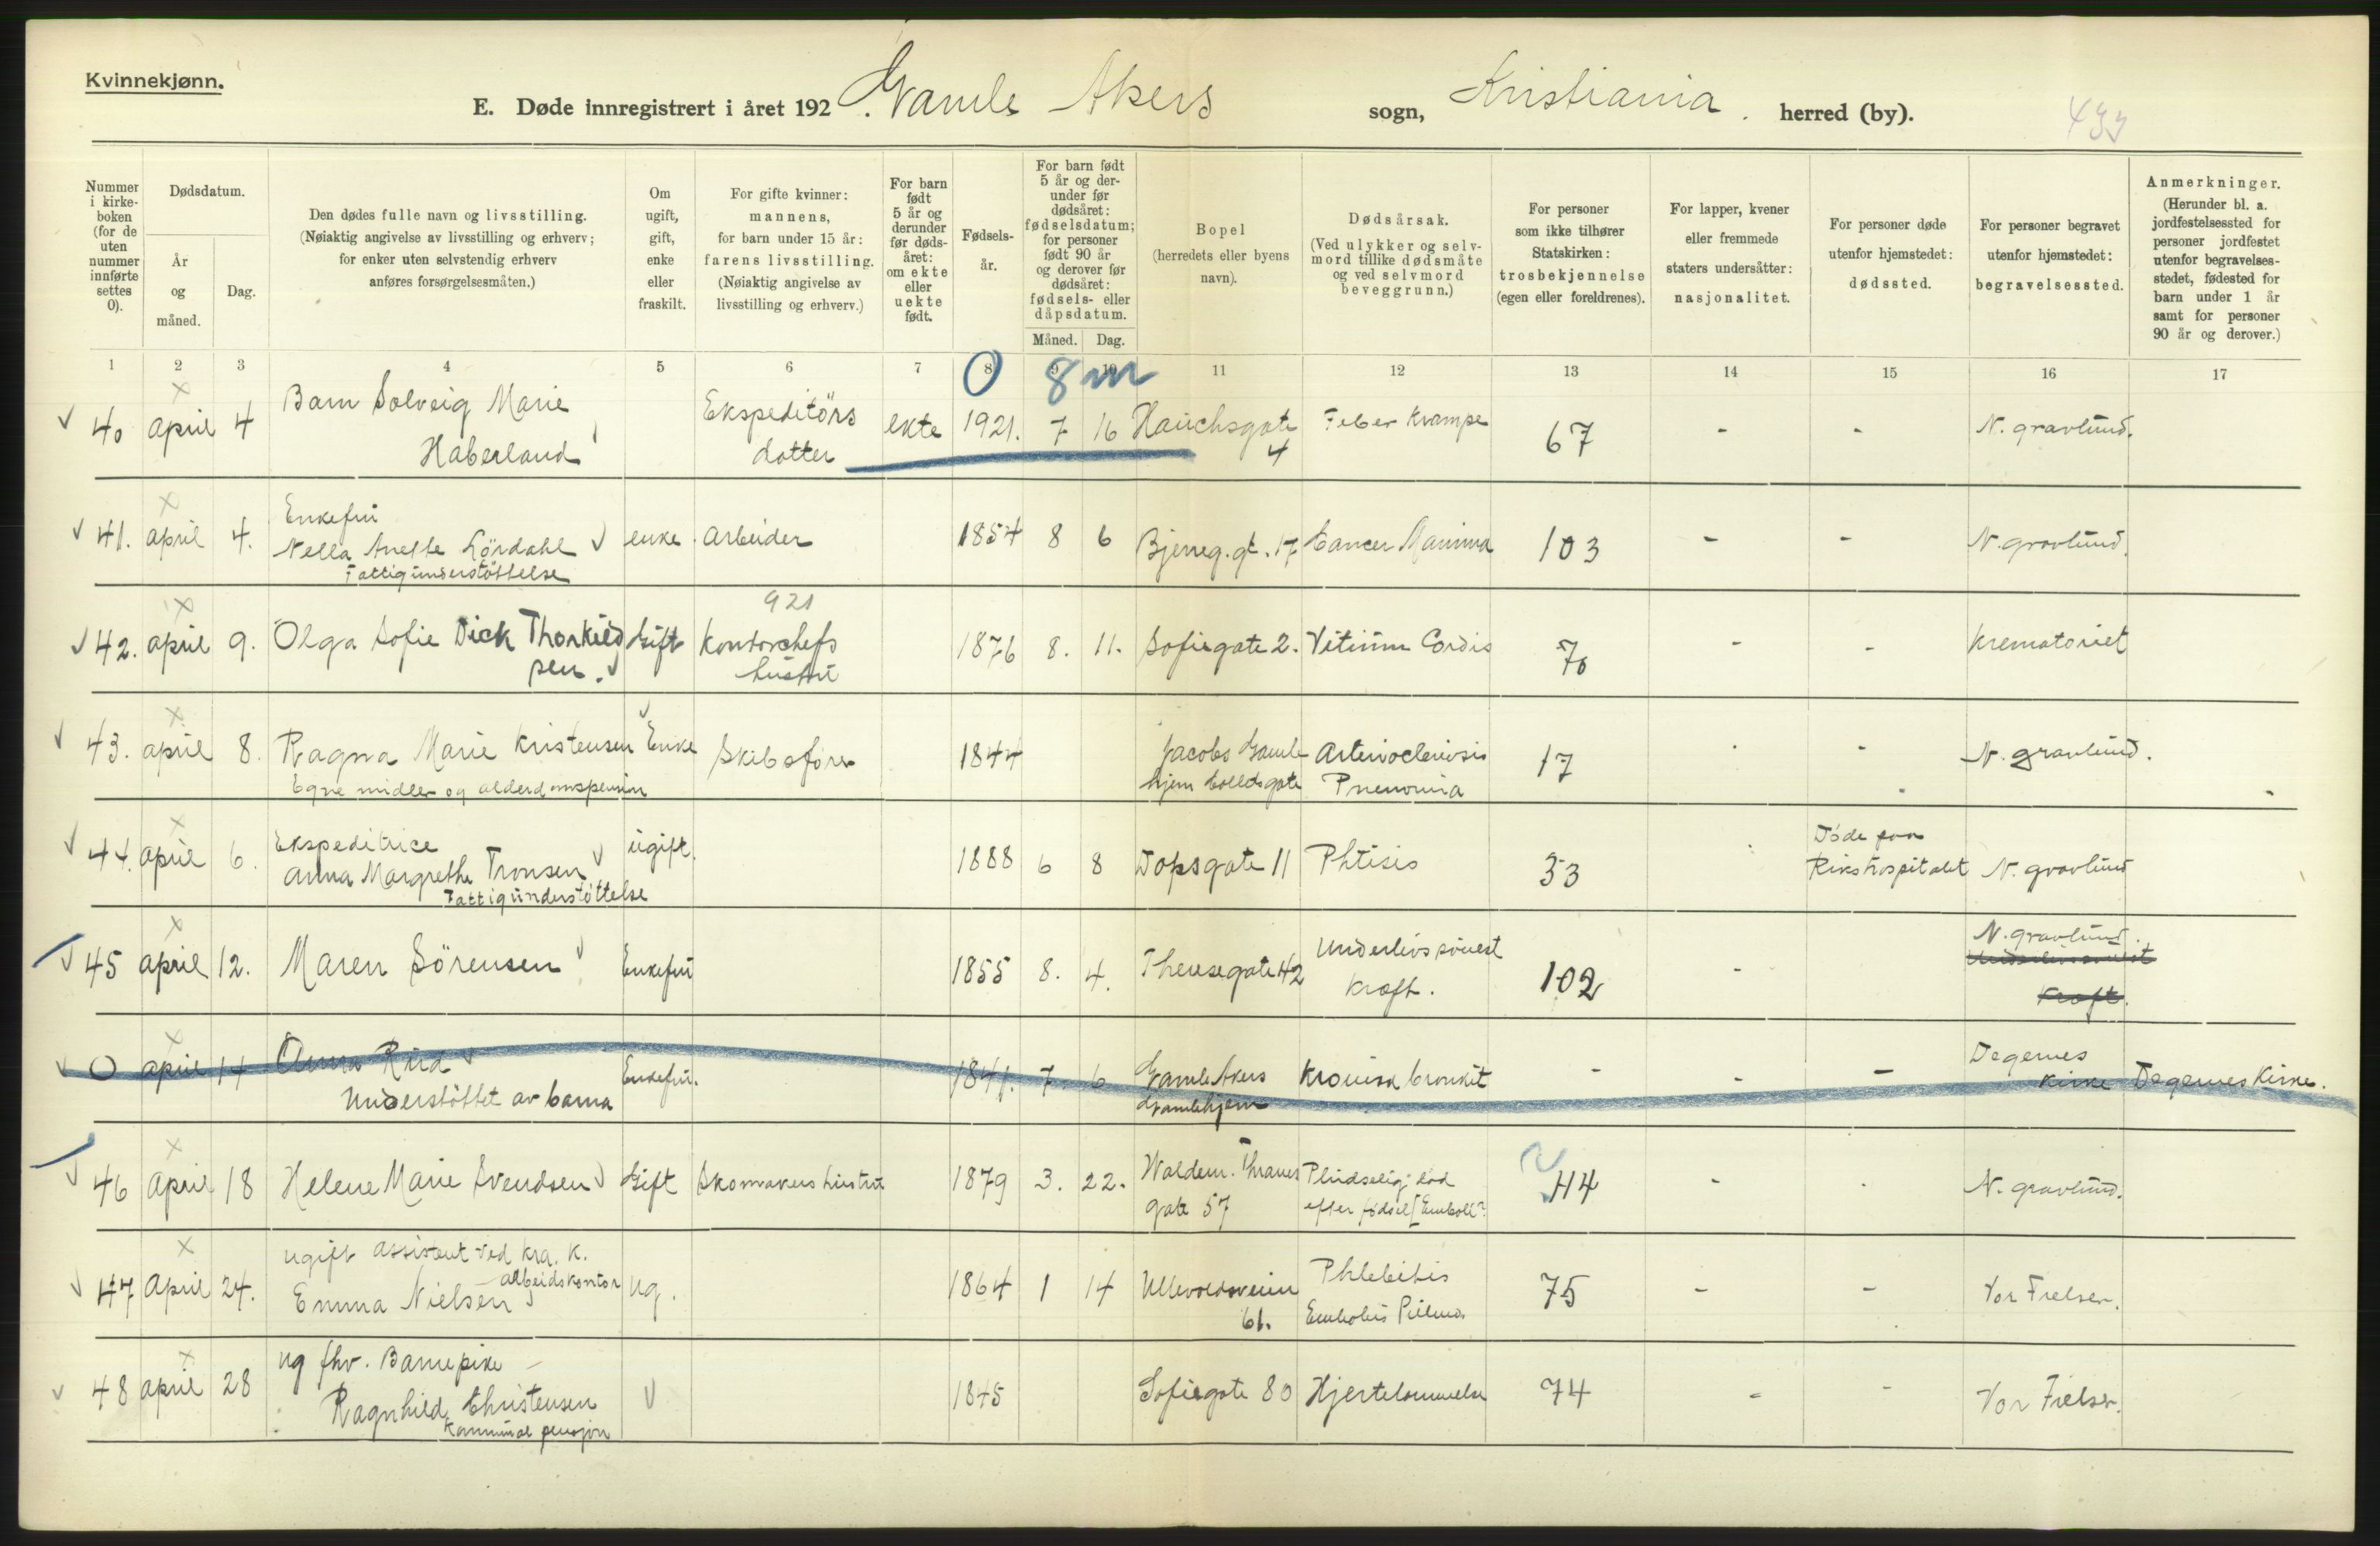 Kvinnekjønn.
E. Døde innregistrert i året 192 . Gamle Akers sogn, Kristiania . herred (by).
433
Nummer i kirkeboken (for de uten nummer innførte settes 0).
Dødsdatum.
År og måned.
Dag.
Den dødes fulle navn og livsstilling.
(Nøiaktig angivelse av livsstilling og erhverv;
for enker uten selvstendig erhverv
anføres forsørgelsesmåten.)
Om ugift, gift, enke eller fraskilt.
For gifte kvinner:
mannens,
for barn under 15 år:
farens livsstilling.
(Nøiaktig angivelse av
livsstilling og erhverv.)
For barn født 5 år og derunder før dødsåret: om ekte eller uekte født.
Fødselsår.
For barn født 5 år og derunder før dødsåret: fødselsdatum; for personer født 90 år og derover før dødsåret: fødsels- eller dåpsdatum.
Måned. Dag.
Bopel
(herredets eller byens
navn).
Dødsårsak.
(Ved ulykker og selvmord tillike dødsmåte og ved selvmord beveggrunn.)
For personer som ikke tilhører Statskirken:
trosbekjennelse
(egen eller foreldrenes).
For lapper, kvener
eller fremmede
staters undersåtter:
nasjonalitet.
For personer døde
utenfor hjemstedet:
dødssted.
For personer begravet
utenfor hjemstedet:
begravelsessted.
Anmerkninger.
(Herunder bl. a.
jordfestelsessted for
personer jordfestet
utenfor begravelsesstedet, fødested for
barn under 1 år
samt for personer
90 år og derover.)
1 2 3 4 5 6 7 8 9 10 11 12 13 14 15 16 17
0 8 m
40 april 4 Barn Solveig Marie Haberland Ekspeditörs datter ekte 1921. 7 16 Hauchsgate 4 Feber Krampe 67 - - N. gravlund.
41. april 4. Enkefru Nella Anette Lördahl Fattigunderstöttelse enke Arbeider 1854 8 6 Bjerreg. gt. 17 Cancer Mamma 103 - - N. gravlund.
921
42. april 9. Olga Sofie Dick Thorkildsen. Gift Kontorchefs hustru 1876 8. 11. Sofiegate 2. Vitium Cordis 70 - - Krematoriet
43. april 8. Ragna Marie Kristensen Egne midler og alderdomspension Enke Skibsförer 1844 Jacobs Gamlehjem Colletsgate Arterioclerosis Pneumonia 17 - N. gravlund.
44. april 6. Ekspeditrice Anna Margrethe Tronsen Fattigunderstöttelse ugift. 1888 6 8 Dopsgate 11 Phtisis 33 Döde paa Rikshospitalet N. gravlund
45 april 12. Maren Sörensen Enkefru 1855 8. 4. Theresegate 42 Underlivssvulst Kræft. 102 - N. gravlund. Underlivssvulst Kræft.
0 april 14 Anna Rud Understöttet av barna Enkefru. 1841. 7 6 Gamle Akers Gamlehjem Kronisk bronkit - - - Degernes Kirke Degernes Kirke.
46 April 18 Helene Marie Svendsen Gift Skomakers hustru 1879 3. 22. Waldem. Thranes gate 57 Pludselig död efter födsel [Emboli? 44 - N. gravlund.
47 April 24. ugift assistent ved Kra. K. arbeidskontor Emma Nielsen ug. 1864 1 14 Ullevoldsveien 61. Phlebitis Embolus Pulmo. 75 - - Vor Frelser.
48 april 28 ug fhv. Barnepike Ragnhild Christensen Kommunal pension 1845 Sofiegate 80 Hjertelammelse 74 - - Vor Frelser.